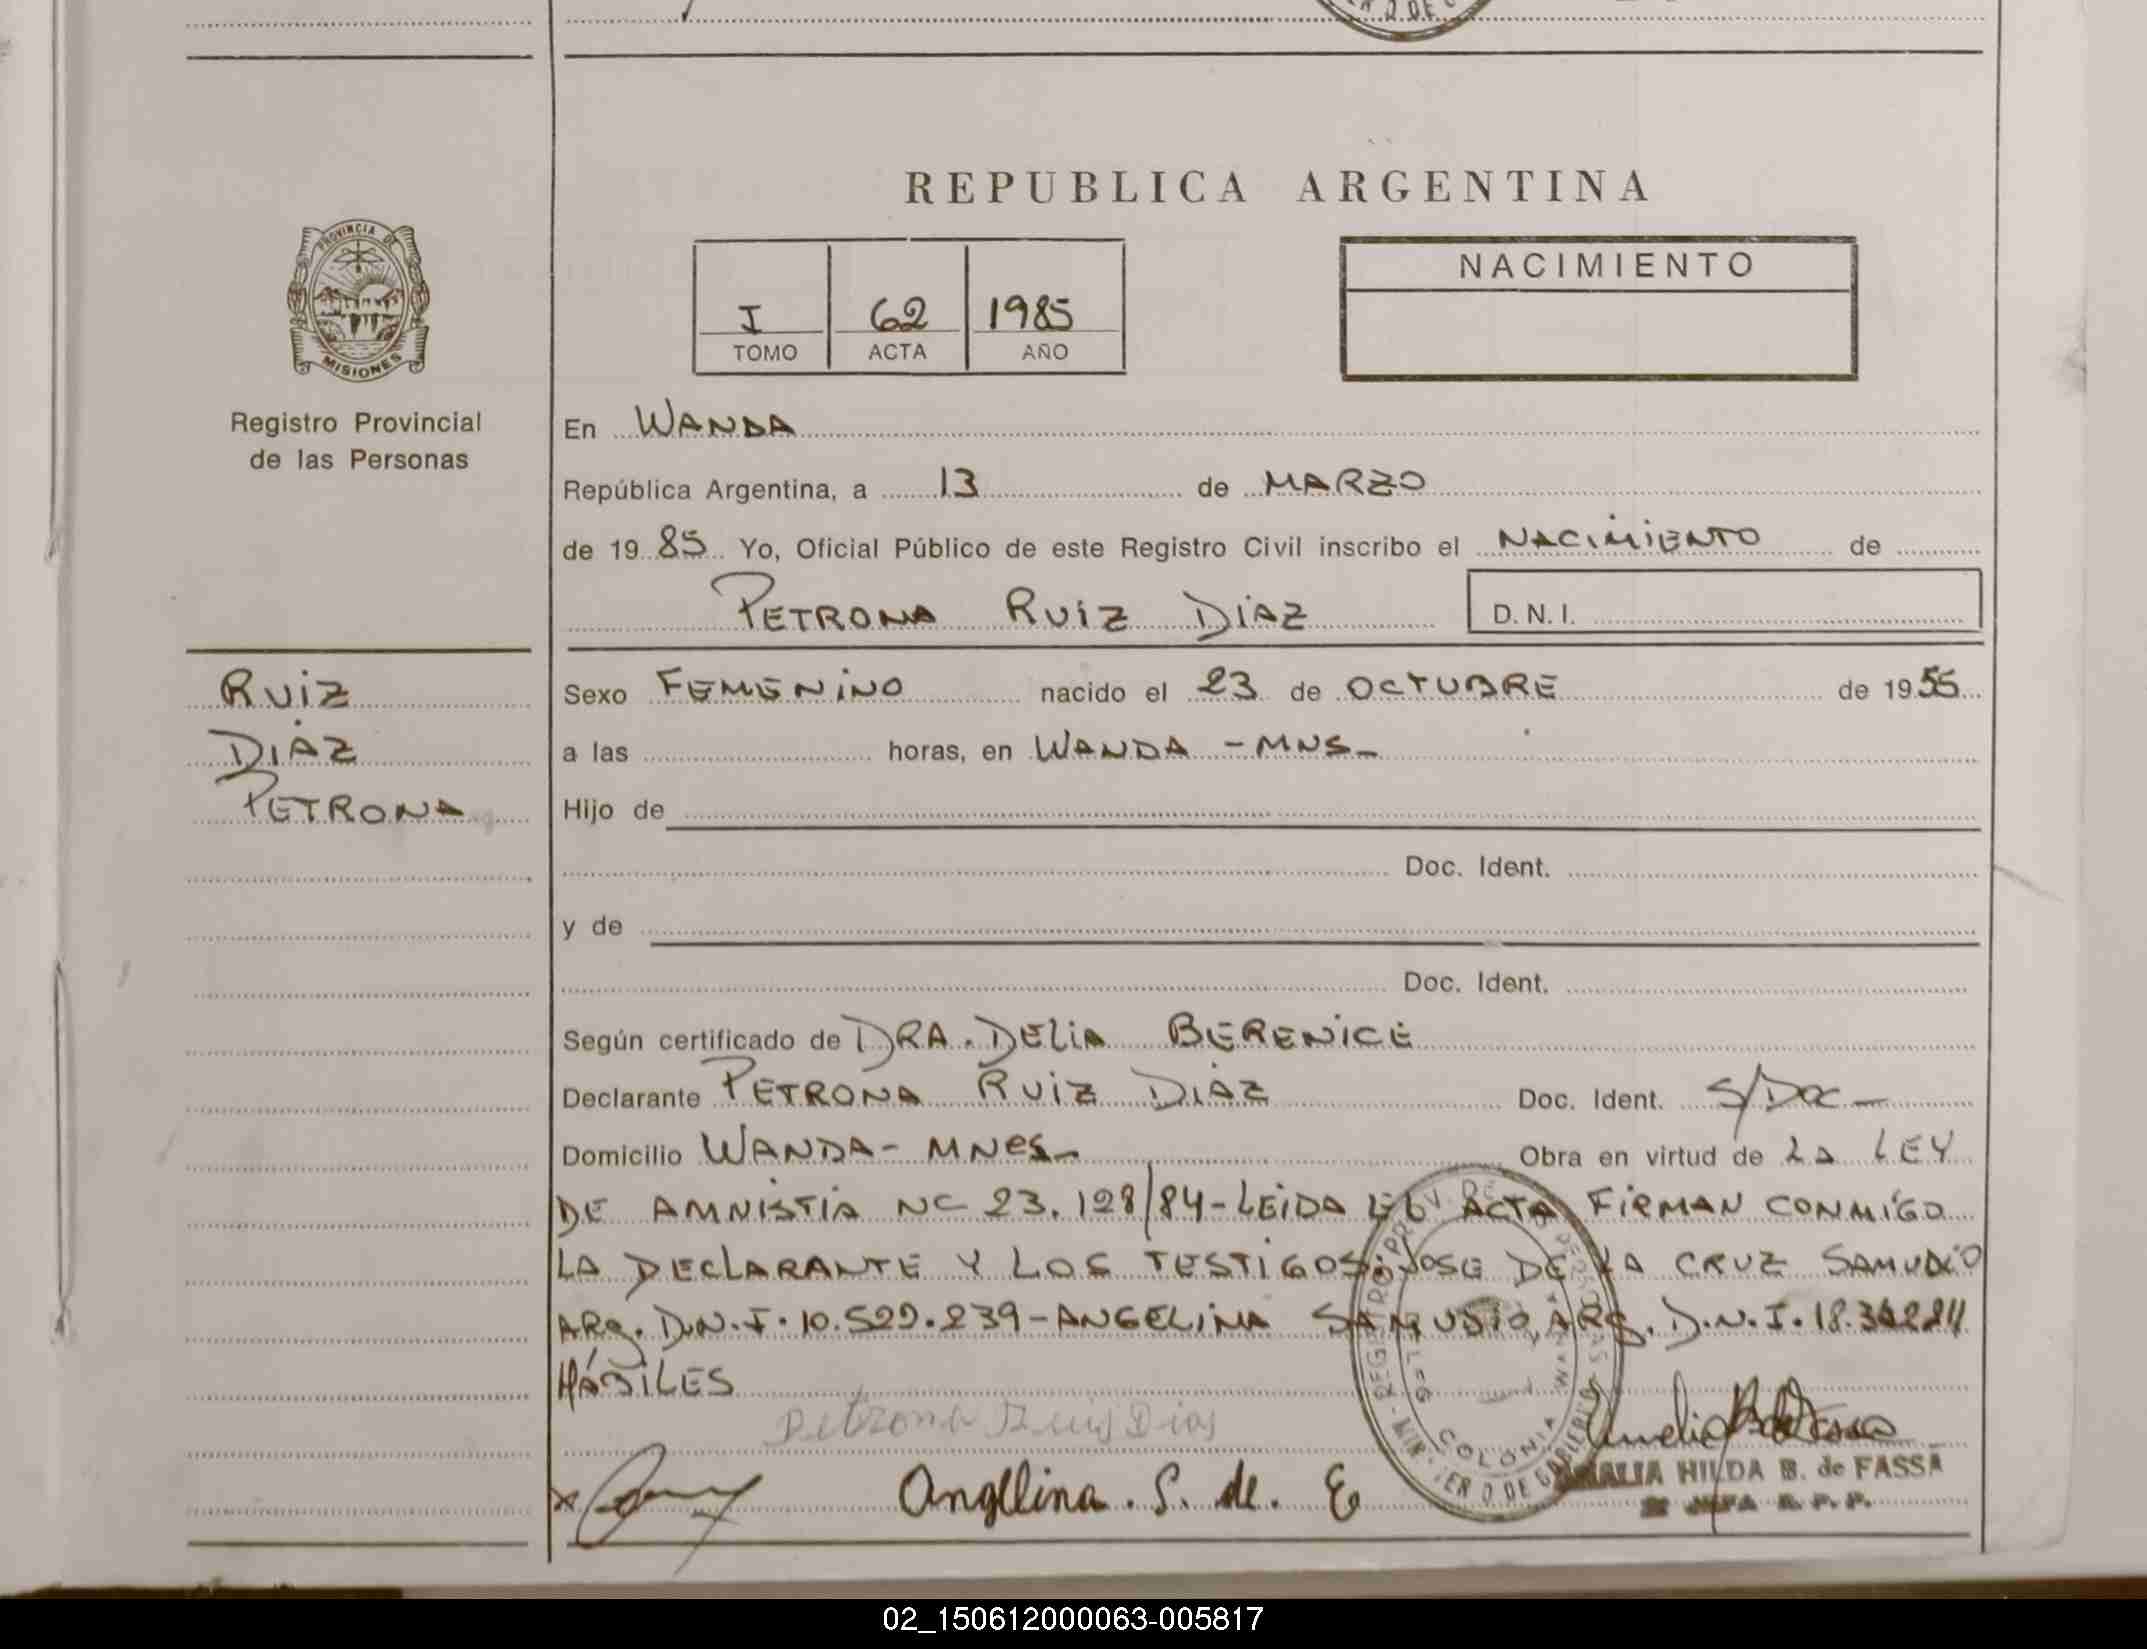 REPUBLICA ARGENTINA
PROVINCIA DE
MISIONES
Registro Provincial
de las Personas
I 62 1985
TOMO ACTA AÑO
NACIMIENTO
En WANDA
República Argentina, a 13 de MARZO
de 19 85 Yo, Oficial Público de este Registro Civil inscribo el NACIMIENTO de
PETRONA RUIZ DIAZ D.N.I.
RUIZ
DIAZ
PETRONA
Sexo FEMENINO nacido el 23 de OCTUBRE de 19 55
a las horas, en WANDA - MNS-
Hijo de
Doc. Ident.
y de
Doc. Ident.
Según certificado de DRA. DELIA BERENICE
Declarante PETRONA RUIZ DIAZ Doc. Ident. S/Doc-
Domicilio WANDA - MNES- Obra en virtud de LA LEY
DE AMNISTIA Nº 23.128/84 - LEIDA EL ACTA FIRMAN CONMIGO
LA DECLARANTE Y LOS TESTIGOS: JOSE DE LA CRUZ SAMUDIO
ARG. D.N.I. 10.529.239 - ANGELINA SAMUDIO, ARG. D.N.I. 18.
HÁBILES
Petrona Ruis Dias
Angelina. S. de. E
COLONIA WANDA
AMALIA HILDA B. de FASSA
JEFA R. P. P.
02_150612000063-005817